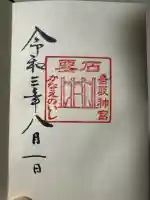 要石
香取神宮
かなめのいし
令和三年八月一日